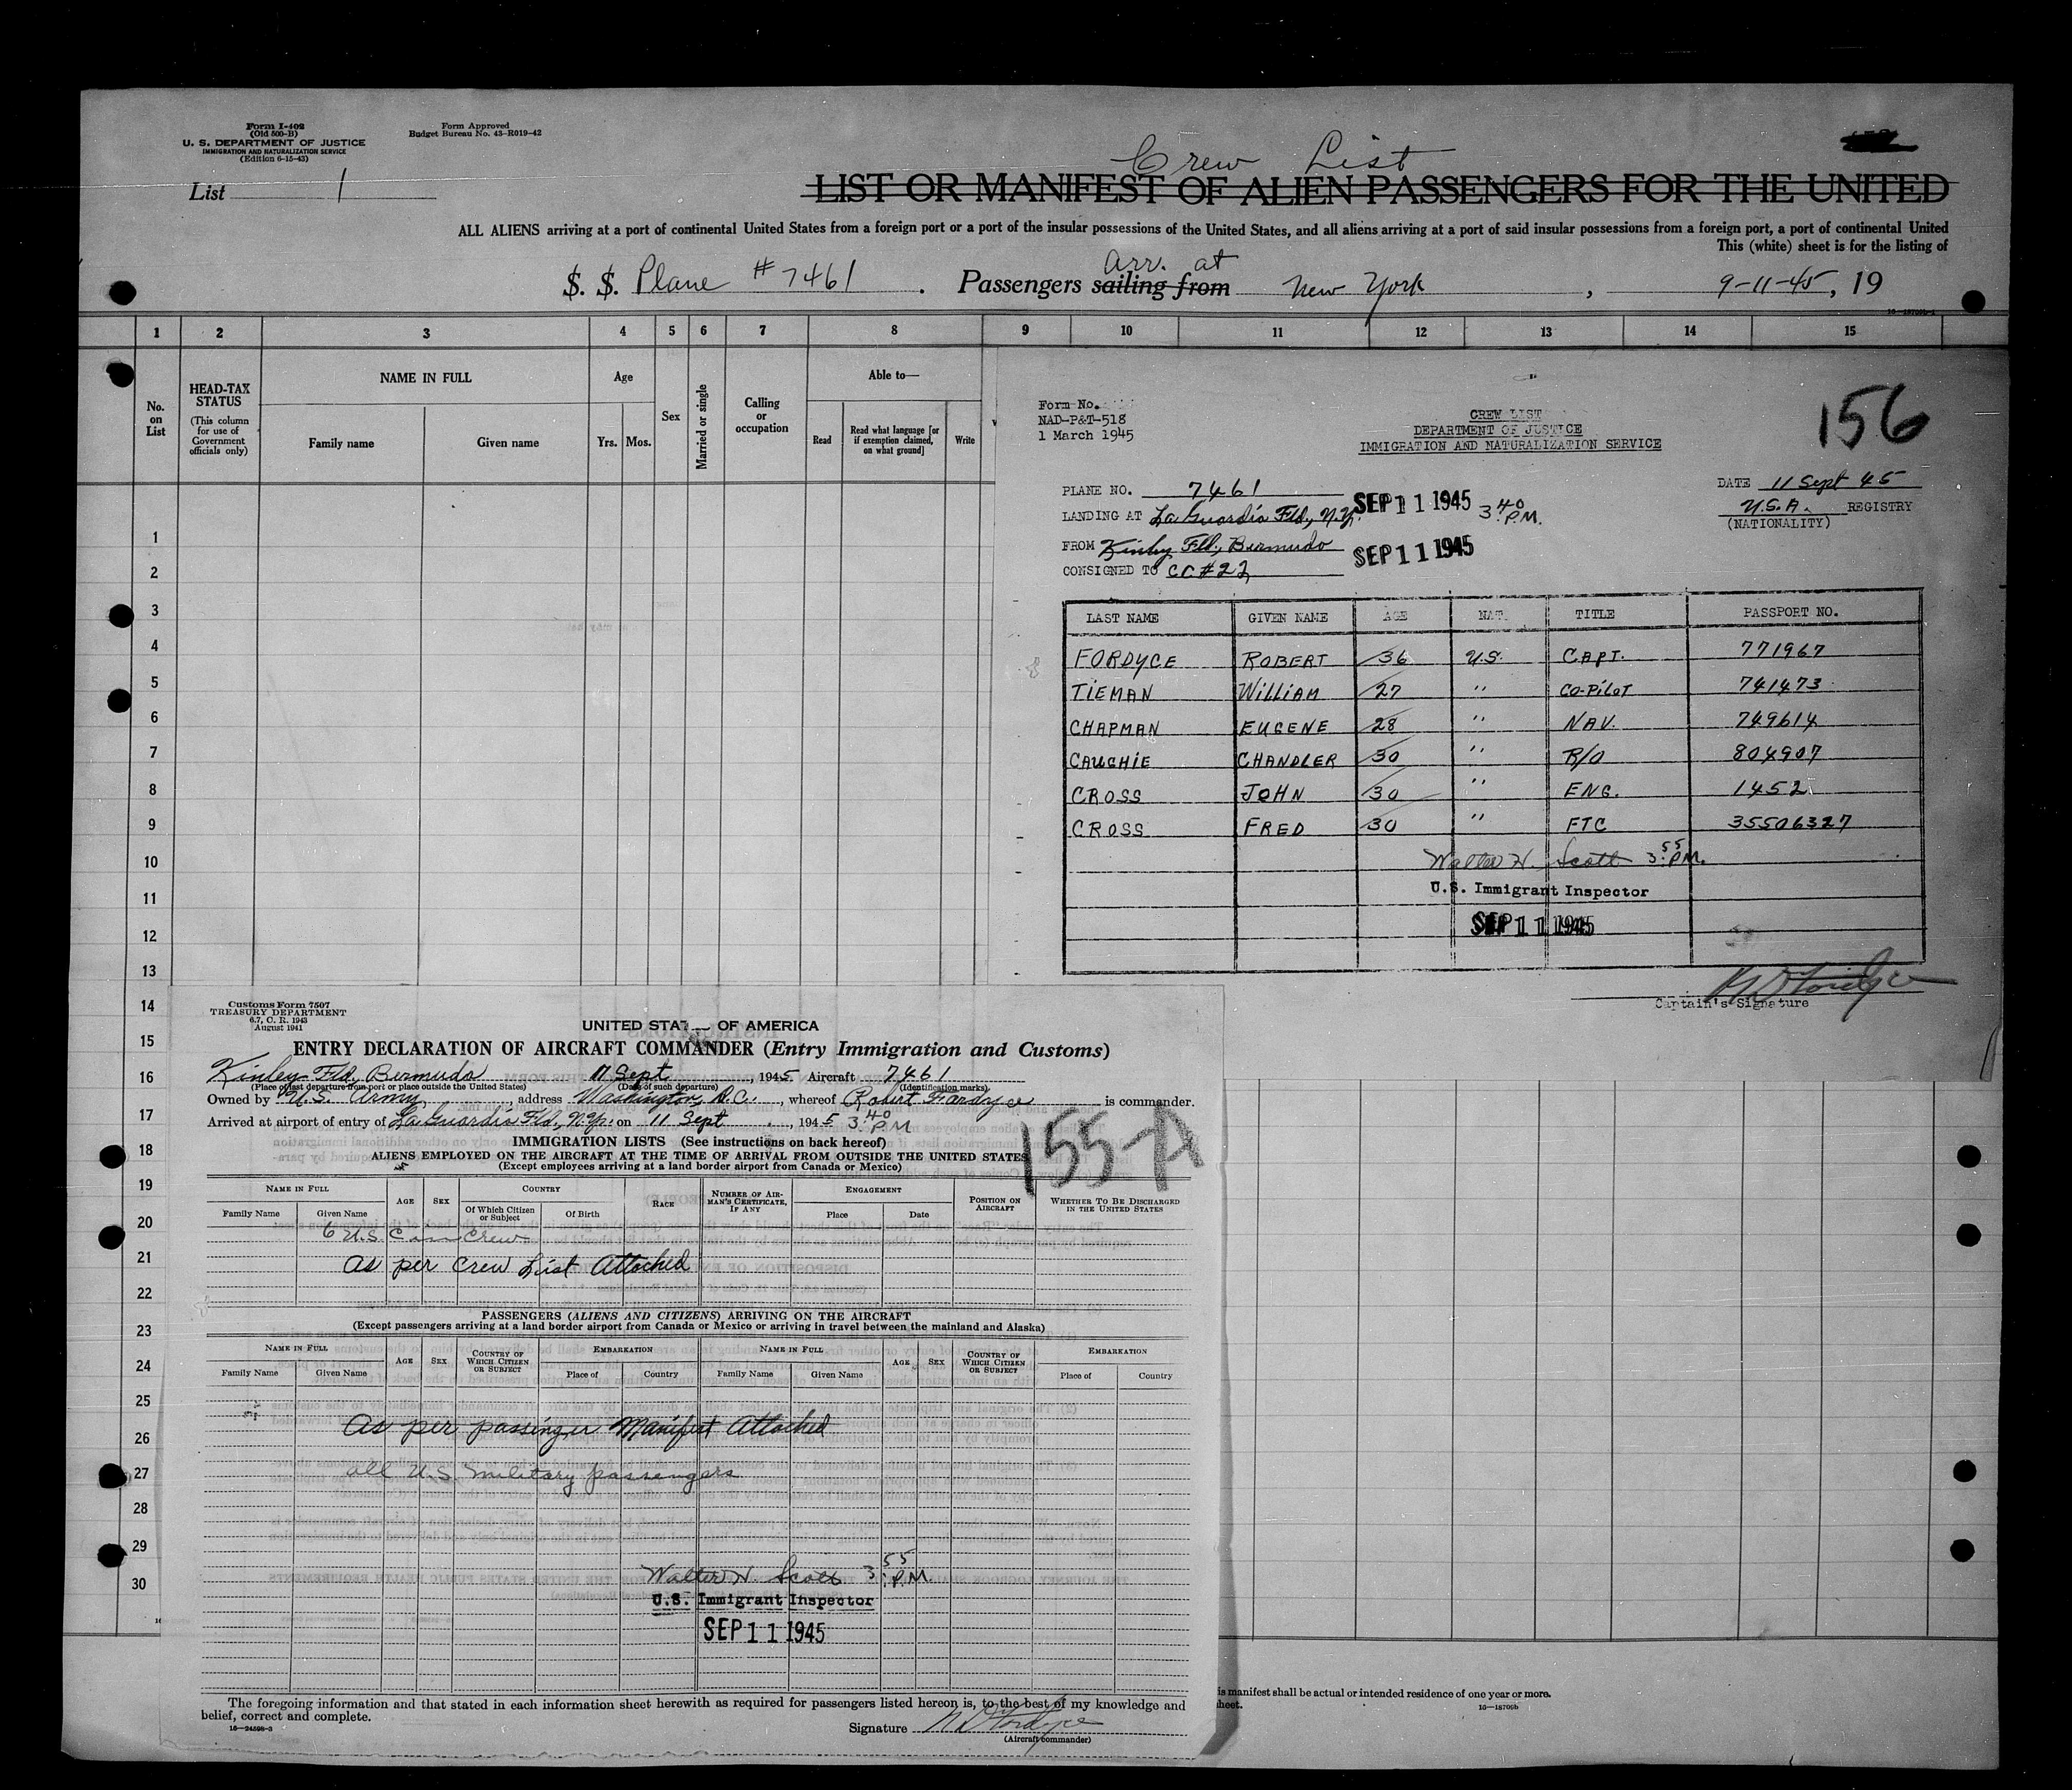 Form I-402
(Old 500-B)
U. S. DEPARTMENT OF JUSTICE
IMMIGRATION AND NATURALIZATION SERVICE
(Edition 6-15-43)
Form Approved
Budget Bureau No. 43-R019-42
List 1
Crew List
LIST OR MANIFEST OF ALIEN PASSENGERS FOR THE UNITED
ALL ALIENS arriving at a port of continental United States from a foreign port or a port of the insular possessions of the United States, and all aliens arriving at a port of said insular possessions from a foreign port, a port of continental United
This (white) sheet is for the listing of
arr. at
S. S. Plane #7461 . Passengers sailing from New York , 9-11-45, 19
1 2 3 4 5 6 7 8 9 10 11 12 13 14 15
No. on List
HEAD-TAX STATUS
(This column for use of Government officials only)
NAME IN FULL
Family name Given name
Age
Yrs. Mos.
Sex
Married or single
Calling or occupation
Able to—
Read
Read what language [or if exemption claimed, on what ground]
Write
1
2
3
4
5
6
7
8
9
10
11
12
13
14
15
16
17
18
19
20
21
22
23
24
25
26
27
28
29
30
Form No.
NAD-P&T-518
1 March 1945
CREW LIST
DEPARTMENT OF JUSTICE
IMMIGRATION AND NATURALIZATION SERVICE
156
PLANE NO. 7461
DATE 11 Sept 45
LANDING AT La Guardia Fld., N.Y. SEP 11 1945 3:40 P.M.
U.S.A. REGISTRY
(NATIONALITY)
FROM Kinley Fld., Bermuda SEP 11 1945
CONSIGNED TO CC#22
LAST NAME GIVEN NAME AGE NAT. TITLE PASSPORT NO.
FORDYCE ROBERT 36 U.S. CAPT. 771967
TIEMAN WILLIAM 27 " CO-PILOT 741473
CHAPMAN EUGENE 28 " NAV. 749614
CAUGHIE CHANDLER 30 " R/O 804907
CROSS JOHN 30 " ENG. 1452
CROSS FRED 30 " FTC 35506327
Walter H. Scott 3:55 P.M.
U.S. Immigrant Inspector
SEP 11 1945
Captain's Signature
Customs Form 7507
TREASURY DEPARTMENT
6.7, C. R. 1943
August 1941
UNITED STATES OF AMERICA
ENTRY DECLARATION OF AIRCRAFT COMMANDER (Entry Immigration and Customs)
Kinley Fld., Bermuda 11 Sept , 1945 Aircraft 7461
(Place of last departure from port or place outside the United States) (Date of such departure) (Identification marks)
Owned by U.S. Army , address Washington, D.C. , whereof Robert Fordyce is commander.
Arrived at airport of entry of La Guardia Fld., N.Y. on 11 Sept , 1945 3:40 PM
155-A
IMMIGRATION LISTS (See instructions on back hereof)
ALIENS EMPLOYED ON THE AIRCRAFT AT THE TIME OF ARRIVAL FROM OUTSIDE THE UNITED STATES
(Except employees arriving at a land border airport from Canada or Mexico)
NAME IN FULL AGE SEX COUNTRY RACE NUMBER OF AIRMAN'S CERTIFICATE, IF ANY ENGAGEMENT POSITION ON AIRCRAFT WHETHER TO BE DISCHARGED IN THE UNITED STATES
Family Name Given Name Of Which Citizen or Subject Of Birth Place Date
6 U.S. Crew
As per Crew List Attached
PASSENGERS (ALIENS AND CITIZENS) ARRIVING ON THE AIRCRAFT
(Except passengers arriving at a land border airport from Canada or Mexico or arriving in travel between the mainland and Alaska)
NAME IN FULL AGE SEX COUNTRY OF WHICH CITIZEN OR SUBJECT EMBARKATION NAME IN FULL AGE SEX COUNTRY OF WHICH CITIZEN OR SUBJECT EMBARKATION
Family Name Given Name Place of Country Family Name Given Name Place of Country
As per passenger Manifest Attached
all U.S. military passengers
Walter H. Scott 3:55 P.M.
U.S. Immigrant Inspector
SEP 11 1945
The foregoing information and that stated in each information sheet herewith as required for passengers listed hereon is, to the best of my knowledge and
belief, correct and complete.
16—24598-3
Signature
(Aircraft commander)
is manifest shall be actual or intended residence of one year or more.
sheet.
16—18709b